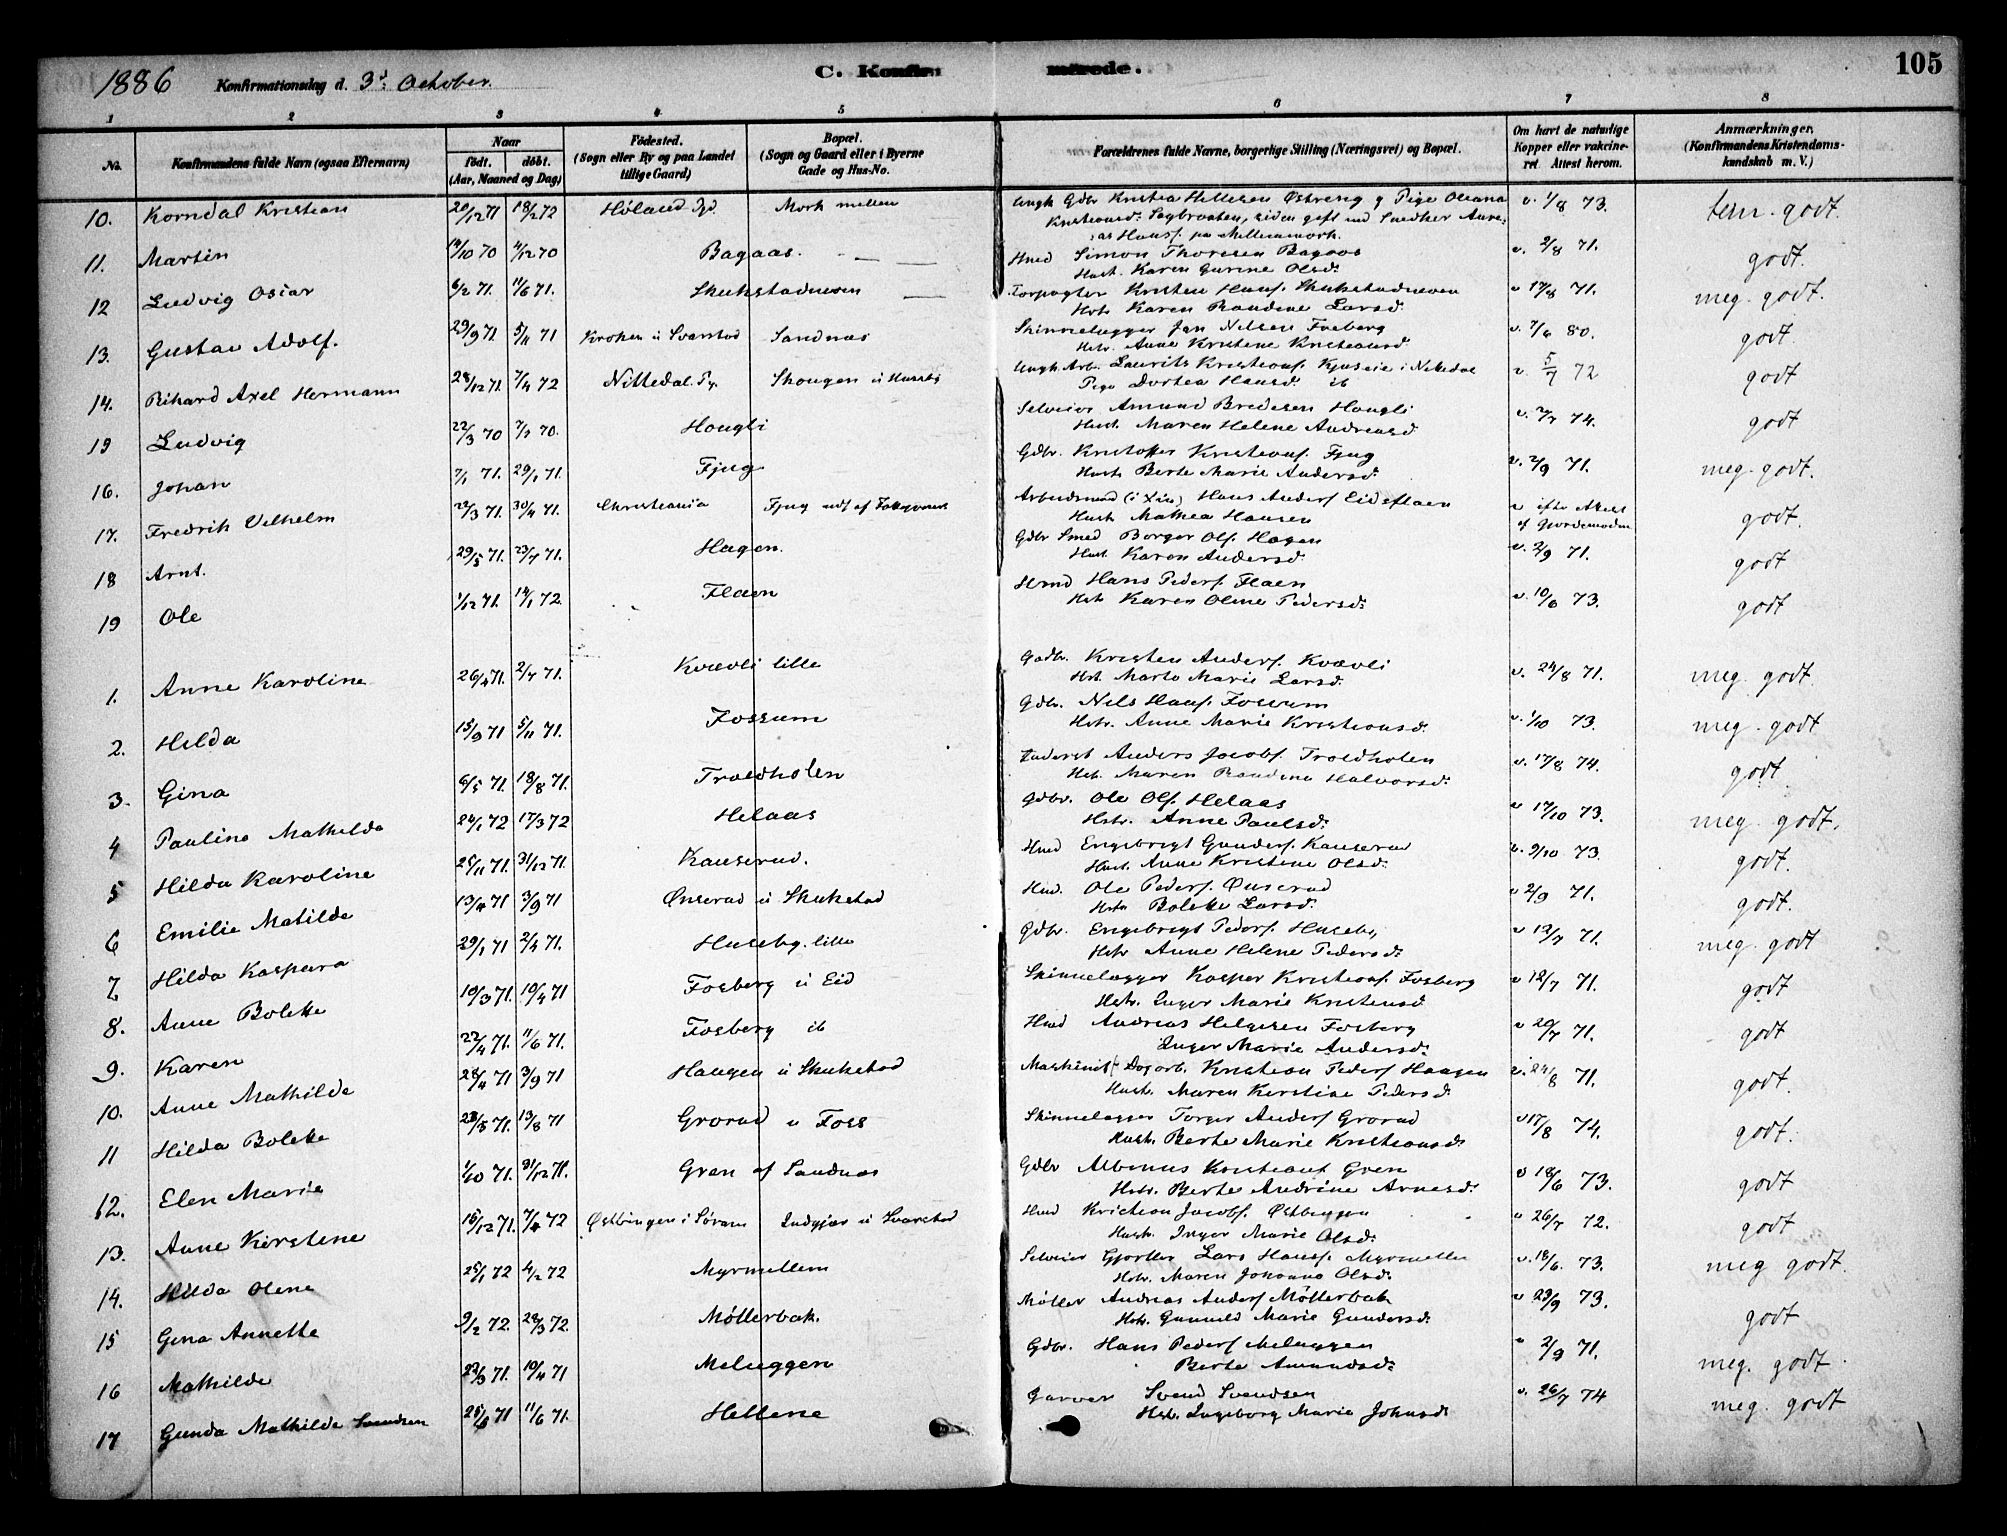 1886 Konfirmationsdag d. 3d October. C. Konfirmerede. 105
1 2 3 4 5 6 7 8
No. Konfirmandens fulde Navn (ogsaa Efternavn) Naar født. døbt. (Aar, Maaned og Dag) Fødested. (Sogn eller By og paa Landet tillige Gaard) Bopæl. (Sogn og Gaard eller i Byerne Gade og Hus-No. Forældrenes fulde Navne, borgerlige Stilling (Næringsvei) og Bopæl. Om havt de naturlige Kopper eller vakcineret Attest herom. Anmærkninger. (Konfirmandens Kristendomskundskab m. V.)
10. Korndal Kristian 20/12 71 18/2 72 Høland Pgd. Mork mellem Ungk Gdbr Kristian Hellesen Østreng og Pige Oleana v. 1/8 73. tem. godt.
Kristiansd. siden gift med Snedker
Hans. paa Mellemmork.
11. Martin 14/10 70 4/12 70 Bagaas. Hmd Simon Thoresen Bagaas v. 2/8 71. godt.
Hust. Karen Gurine Olsd:
12 Ludvig Oskar 6/2 71. 11/6 71. Skukstadneven Forpagter Kristen Hans. Skukstadneven v 17/8 71. meg. godt.
Hstr Karen Randine Larsd.
13. Gustav Adolf. 29/9 71 5/11 71 Kroken u Svarstad Sandnæs Skindlægger Jan Nilsen Froberg v. 7/6 80. godt.
Hstr. Anne Kristine Kristiansd.
14. Rikard Axel Hermann 28/12 71. 7/4 72 Nittedal Pr. Skougen u Huseby Ungk Arb. Laurits Kristians. Kjuseie i Nitedal v. 5/7 72 godt
Pige Dortea Hansd. ib
19 Ludvig 22/3 70 7/7 70. Hougli Selveier Amund Bredesen Hougli v. 2/7 74. godt
Hust. Maren Helene Andreasd.
16. Johan 7/1 71. 29/1 71. Fjug Gdbr. Kristoffer Kristians. Fjug v. 2/9 71. meg. godt.
Hust. Berte Marie Andersd.
17. Fredrik Vilhelm 22/3 71. 30/4 71. Christiania Fjug uds. af Fattigvæsenet Arbeidsmand (i Xia) Hans Anders. Eidsflaen v efter Attest godt.
Hust. Mathea Hansen af Gjordemoder
18 Arnt. 29/5 71. 23/7 71. Hagen. Gdbr Smed Borger Ols. Hagen v. 2/9 71. godt
Hust. Karen Andersd.
19 Ole 1/12 71. 14/1 72. Flaen Hmd Hans Peders. Flaen v. 10/6 73. godt
Hstr Karen Oline Pedersd:
1. Anne Karoline 26/4 71. 2/7 71. Kvævli lille Gadbr. Kristen Anders. Kvævli v. 24/8 71. meg godt.
Hst. Marte Marie Larsd:
2. Hilda 15/9 71 5/11 71. Fossum Gdbr. Nils Hans. Fossum v. 1/10 73. meg. godt
Hstr. Anne Marie Kristiansd.
3. Gina 6/5 71. 18/8 71. Troldholen Inderst Anders Jacobs. Troldholen v. 17/8 74. godt
Hst. Maren Randina Halvorsd:
4 Pauline Mathilde 24/1 72 17/3 72 Helaas Gdbr. Ole Ols. Helaas v 17/10 73. meg godt.
Hstr. Anne Paulsd.
5 Hilda Karoline 25/11 71. 31/12 71. Kauserud. Hmd Engebregt Gunders. Kauserud v. 9/10 73. godt.
Hust. Anne Kristine Olsd.
6 Emilie Matilde 13/4 71 3/9 71 Ønserud u Skukstad Hmd. Ole Peders. Ønserud v 2/9 71. godt.
Hstr Bolette Larsd.
7 Hilda Kaspara 29/1 71 2/4 71. Huseby. lille Gdbr. Engebregt Peders. Huseby v 12/7 71. meg. godt
Hstr Anne Helene Pedersd:
8. Anne Bolette 10/3 71. 10/4 71 Fosberg u Eid Skindlægger Kasper Kristians. Fosberg v 12/7 71. godt
Hstr. Inger Marie Kristensd
9. Karen 22/4 71. 11/6 71. Fosberg ib Hmd Andreas Helgesen Fosberg v 20/7 71. godt
Inger Marie Andersd.
10. Anne Mathilde 28/4 71 3/9 71 Haugen u Skukstad Maskinist Dagarb. Kristian Peders. Haugen v. 24/8 71. godt.
Hust. Maren Kirstine Pedersd.
11 Hilda Bolette 28/5 71. 13/8 71 Grorud u Foss Skindlægger Torger Anders. Grorud v 17/8 74. godt.
Hust. Berte Marie Kristiansd.
12. Elen Marie 1/10 71. 31/12 71. Gren af Sandnæs Gdbr Albinus Kristians. Gren v 18/6 73. godt
Hstr. Berte Andrine Arnesd.
13. Anne Kirstine 15/12 71. 7/4 72 Østbingen i Sørum Indgjær u Svarstad Hmd Kristian Jacobs. Østbingen v 26/7 72. godt
Hust. Inger Marie Olsd:
14. Hilda Olene 25/1 72 4/2 72 Myrmellem Selveier Gjortler Lars Hans. Myrmellem v. 18/6. 73. meg godt.
Hstr. Maren Johanna Olsd.
15 Gina Annette 9/2 72. 28/3 72. Møllerbak. Møller Andreas Anders. Møllerbak v 23/9 73. godt
Hstr. Gunnild Marie Gundersd.
16 Mathilde 23/3 71. 10/4 71 Meluggen Gdbr. Hans Peders. Meluggen v 2/9 71. meg. godt.
Berte Amundsd:
17 Gunda Mathilde Svendsen 25/2 71 11/6 71. Hellene Garver Svend Svendsen v. 26/7 74 meg. godt
Hstr. Ingeborg Marie Johnsd